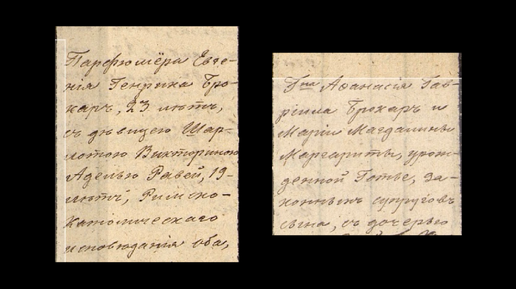 Парфюмёра Евге-
нія Генриха Бро-
каръ, 23 лѣтъ,
съ дѣвицею Шар-
лотою Викториною
Аделью Равей, 19-
лѣтъ, Римско-
Католическаго
исповѣданія оба,
Гна Аѳанасія Гав-
ріила Брокаръ и
Маріи Магдалины
Маргариты, урож-
денной Готье, за-
конныхъ супруговъ
сына, съ дочерью